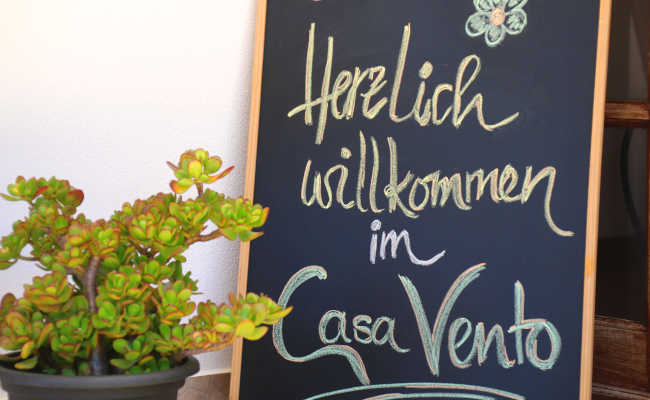 Herzlich
willkommen
im
Casa Vento